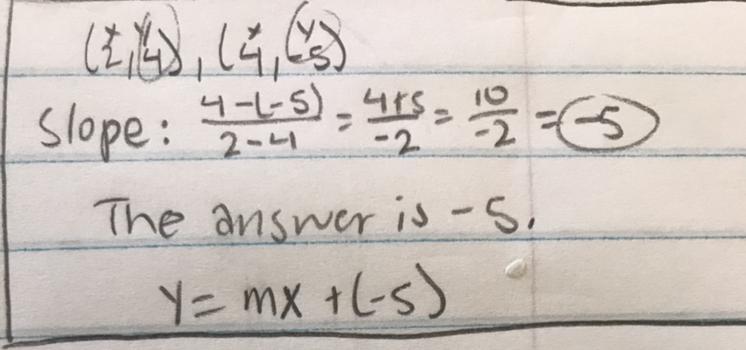 (2, 4), (4, -5)
x y x y
Slope: 4-(-5)/2-4 = 4+5/-2 = 10/-2 = -5
The answer is -5.
y = mx + (-5)